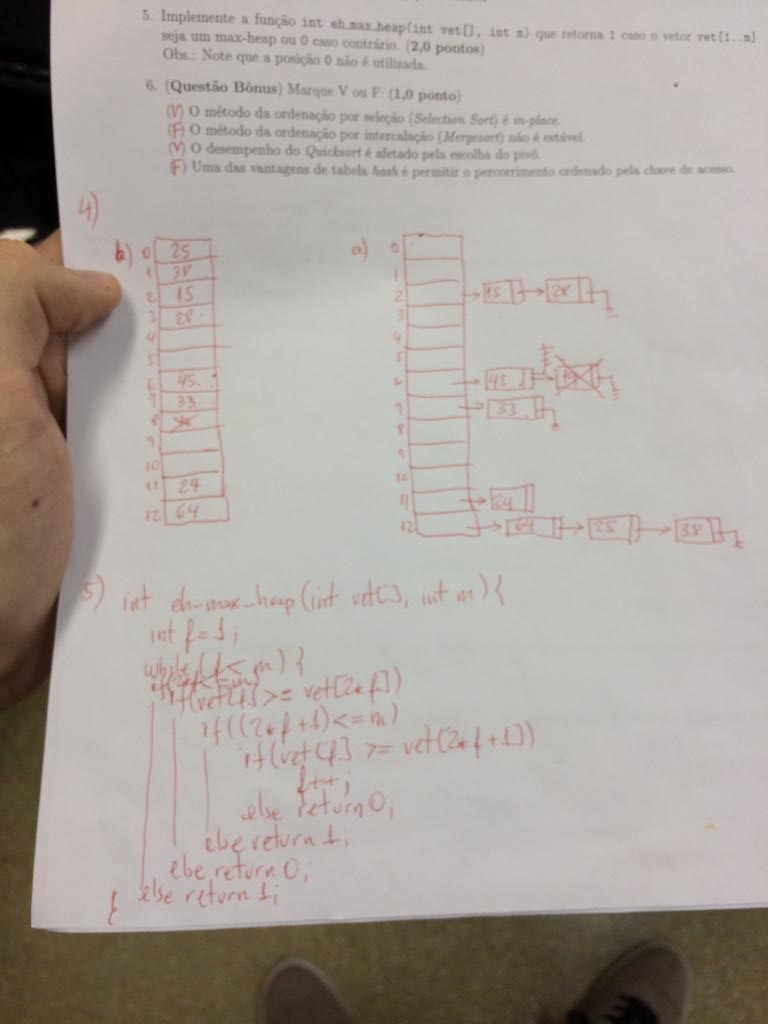 5. Implemente a função int eh_max_heap(int vet[], int m) que retorna 1 caso o vetor vet[1..m]
seja um max-heap ou 0 caso contrário. (2,0 pontos)
Obs.: Note que a posição 0 não é utilizada.
6. (Questão Bônus) Marque V ou F: (1,0 ponto)
(V) O método da ordenação por seleção (Selection Sort) é in-place.
(F) O método da ordenação por intercalação (Mergesort) não é estável.
(V) O desempenho do Quicksort é afetado pela escolha do pivô.
(F) Uma das vantagens de tabela hash é permitir o percorrimento ordenado pela chave de acesso.
4)
b)
0 25
1 38
2 15
3 28
4
5
6 45
7 33
8
9
10
11 24
12 64
a)
0
1
2 15 28
3
4
5
6 45
7 33
8
9
10
11 24
12 64 25 38
5) int eh_max_heap(int vet[], int m){
int f=1;
while(f<=m){
if(vet[f]>= vet[2*f])
if((2*f+1)<=m)
if(vet[f] >= vet[2*f+1])
f++;
else return 0;
else return 1;
else return 0;
else return 1;
}